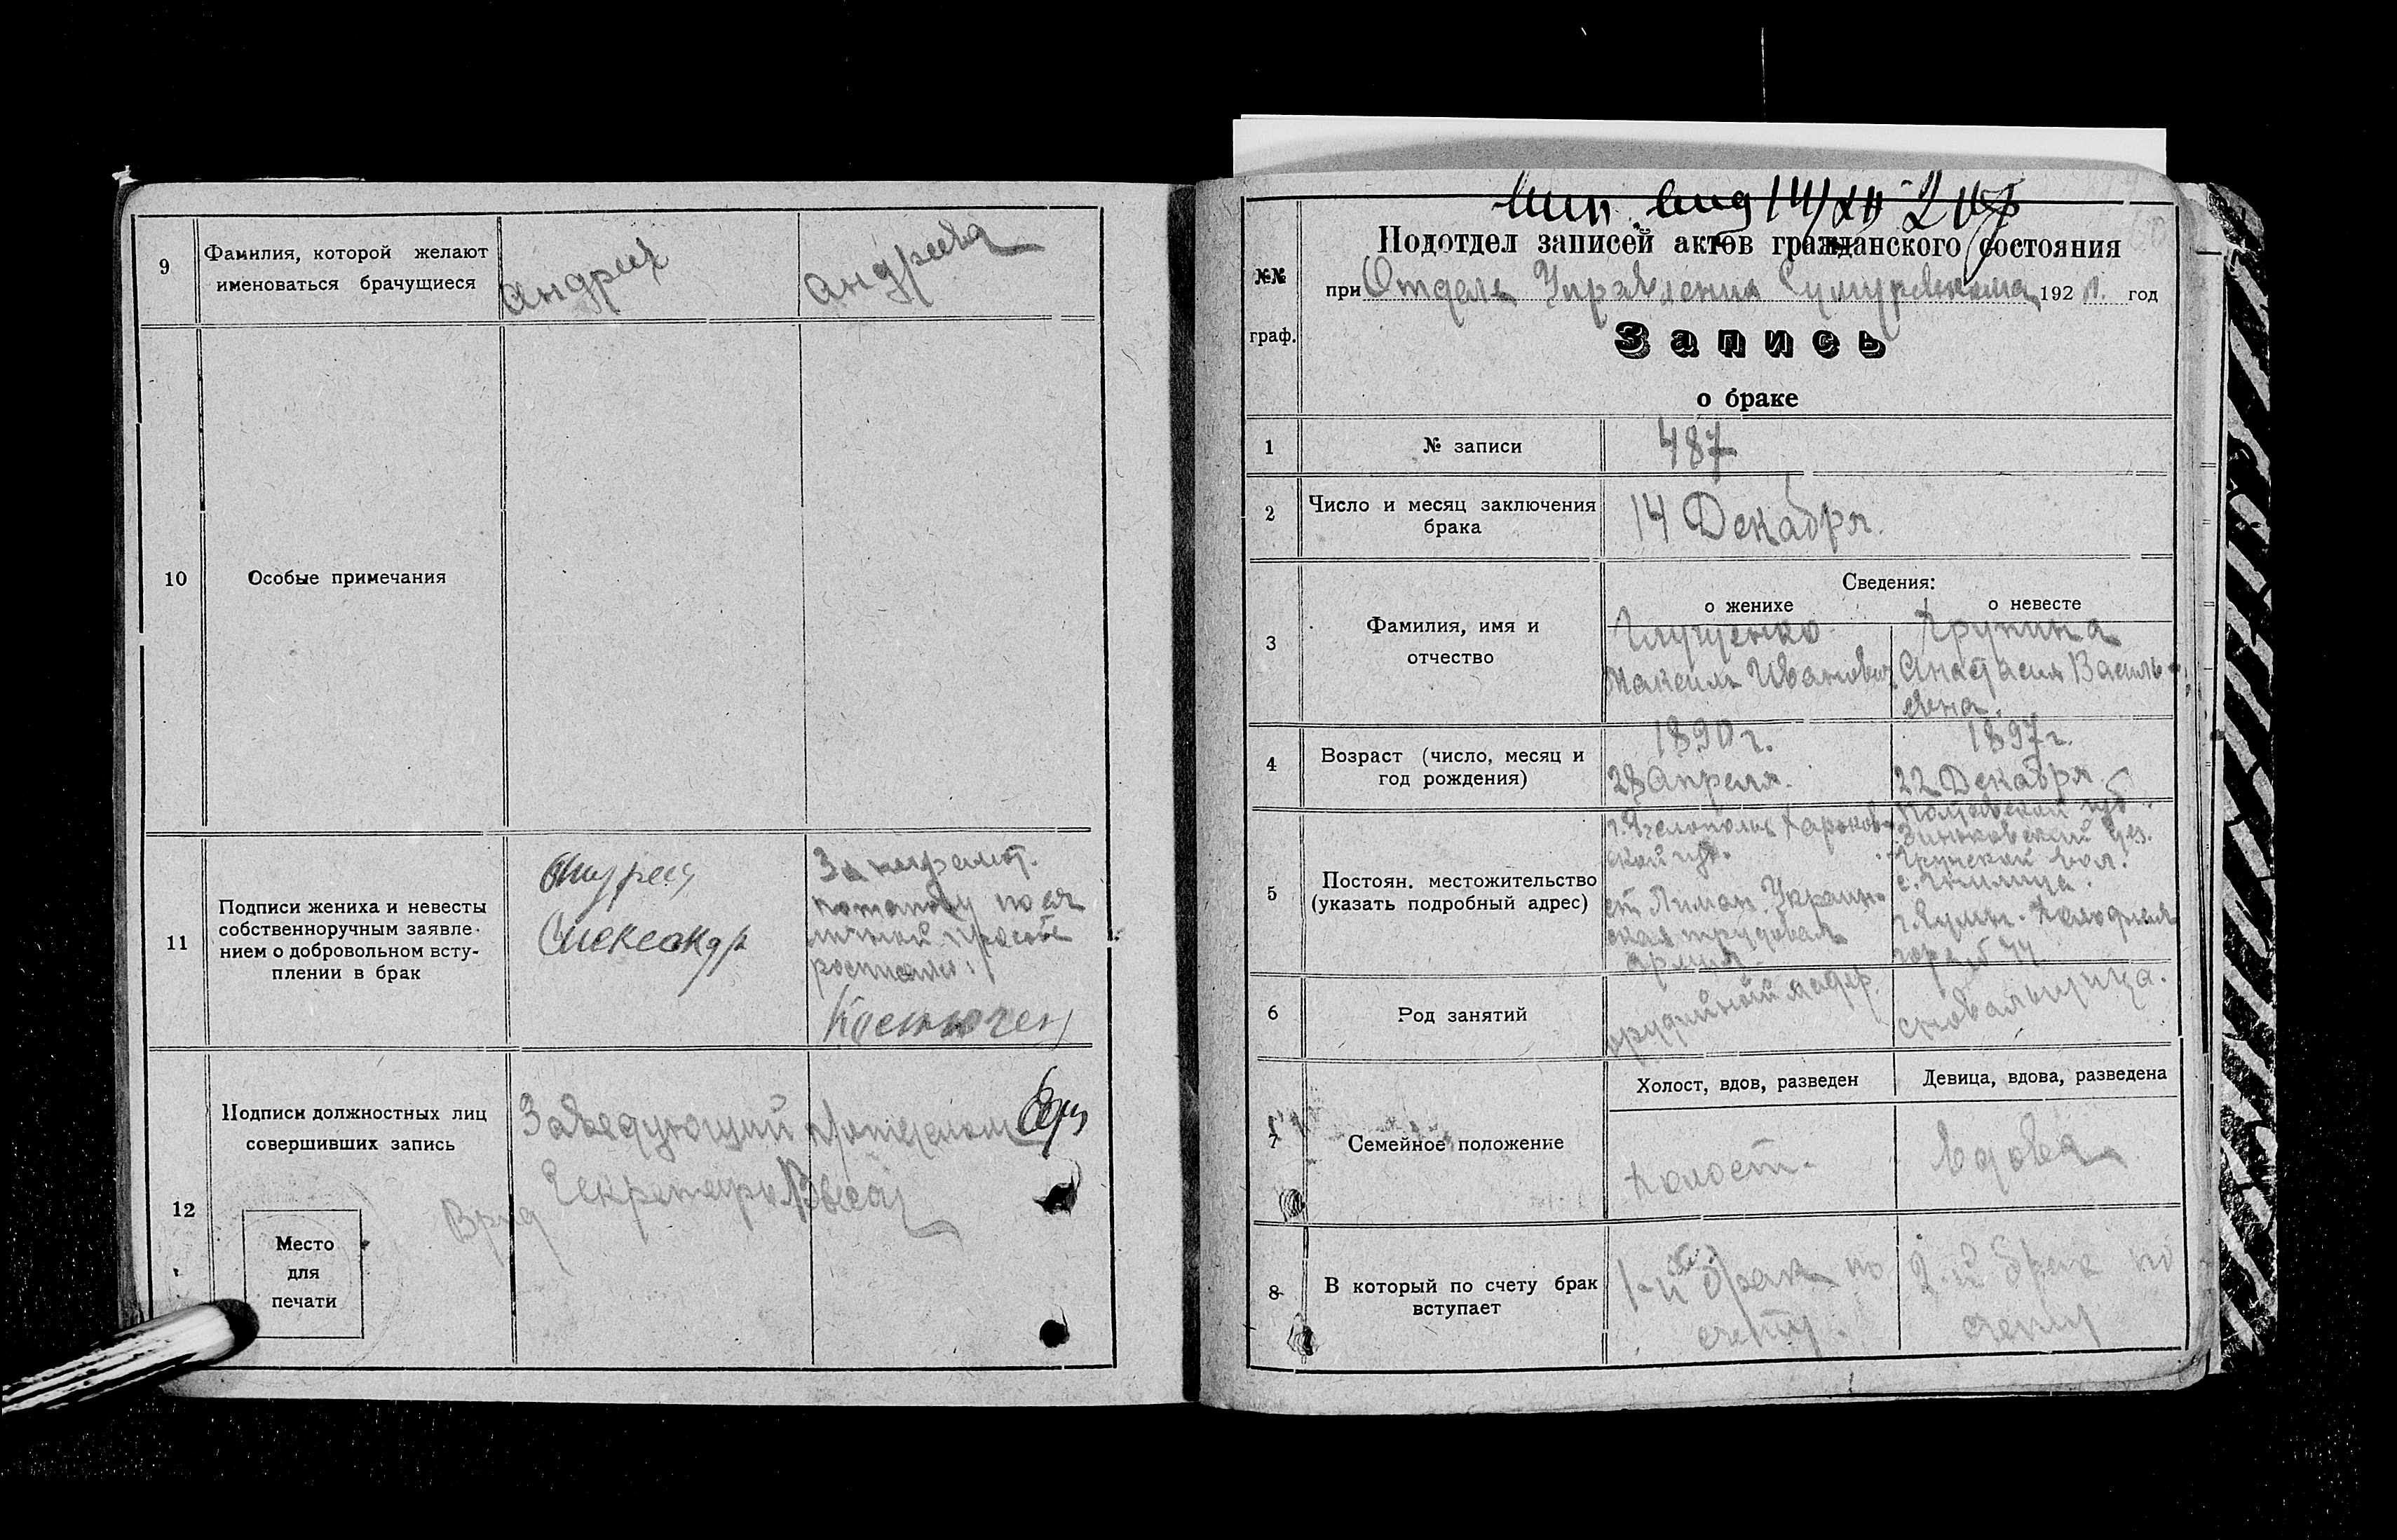 9
Фамилия, которой желают
именоваться брачущиеся
Андрец
Андреева
10
Особые примечания
11
Подписи жениха и невесты
собственноручным заявле-
нием о добровольном всту-
плении в брак
Александр
За неграмот.
по ея
личной просьбе
12
Подписи должностных лиц
совершивших запись
Заведующий
Секретарь
Врид
Место
для
печати
№№
граф.
14/XII 20
Подотдел записей актов гражданского состояния
при Отделе Управления 192 0. год
Запись
о браке
1
№ записи
487
2
Число и месяц заключения
брака
14 Декабря.
3
Фамилия, имя и
отчество
Сведения:
о женихе
о невесте
Глущенко
Максим Иванович
Анастасия Василь-
евна.
4
Возраст (число, месяц и
год рождения)
1890 г.
28 Апреля.
1897 г.
22 Декабря
5
Постоян. местожительство
(указать подробный адрес)
Харьков-
ской губ.
ст. Лиман. Украин-
ская трудовая
армия
Полтавской губ.
Зиньковский уез.
вол.
6
Род занятий
сновальщица.
7
Семейное положение
Холост, вдов, разведен
Девица, вдова, разведена
холост.
вдова
8
В который по счету брак
вступает
1-й брак по
счету.
2-й брак по
счету